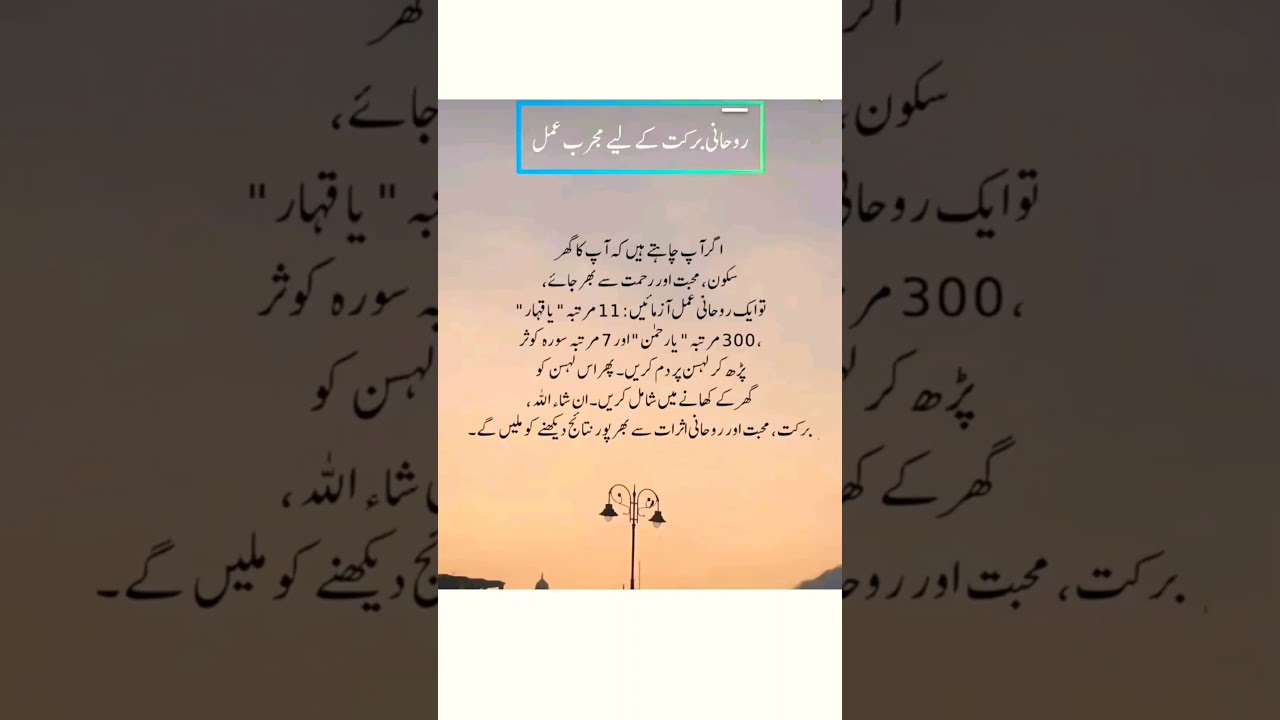 روحانی برکت کے لیے مجرب عمل
اگر آپ چاہتے ہیں کہ آپ کا گھر
سکون، محبت اور رحمت سے بھر جائے،
تو ایک روحانی عمل آزمائیں: 11 مرتبہ "یا قہار"
، 300 مرتبہ "یا رحمٰن" اور 7 مرتبہ سورہ کوثر
پڑھ کر لہسن پر دم کریں۔ پھر اس لہسن کو
گھر کے کھانے میں شامل کریں۔ ان شاء اللہ،
برکت، محبت اور روحانی اثرات سے بھرپور نتائج دیکھنے کو ملیں گے۔